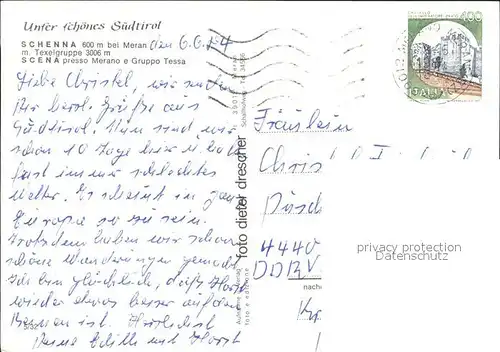 Unser schönes Südtirol
SCHENNA 600 m bei Meran
m. Texelgruppe 3006 m
SCENA presso Merano e Gruppo Tessa
den 6.6.84
400
ITALIA
Liebe Christel, wir senden
Dir herzl. Grüße aus
Südtirol. Nun sind wir
schon 10 Tage hier u. hab.
fast immer schlechtes
Wetter. Es scheint in ganz
Europa so zu sein.
Trotzdem haben wir schon
schöne Wanderungen gemacht
Ich bin glücklich, daß Horst
wieder etwas besser auf den
Beinen ist. Herzlichst
Deine Edith mit Horst
foto dieter drescher
Aufnahme und Verlag
foto e edizione
39017
Fräulein
Chris
4440
DDR
nach
privacy protection
Datenschutz